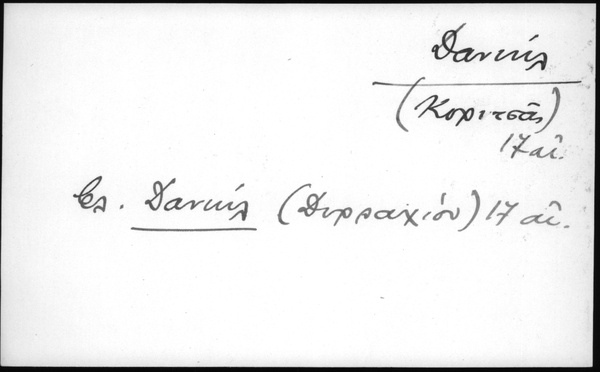 Δανιήλ
(Κοριτσᾶς)
17 αἰ.
βλ. Δανιήλ (Δυρραχίου) 17 αἰ.